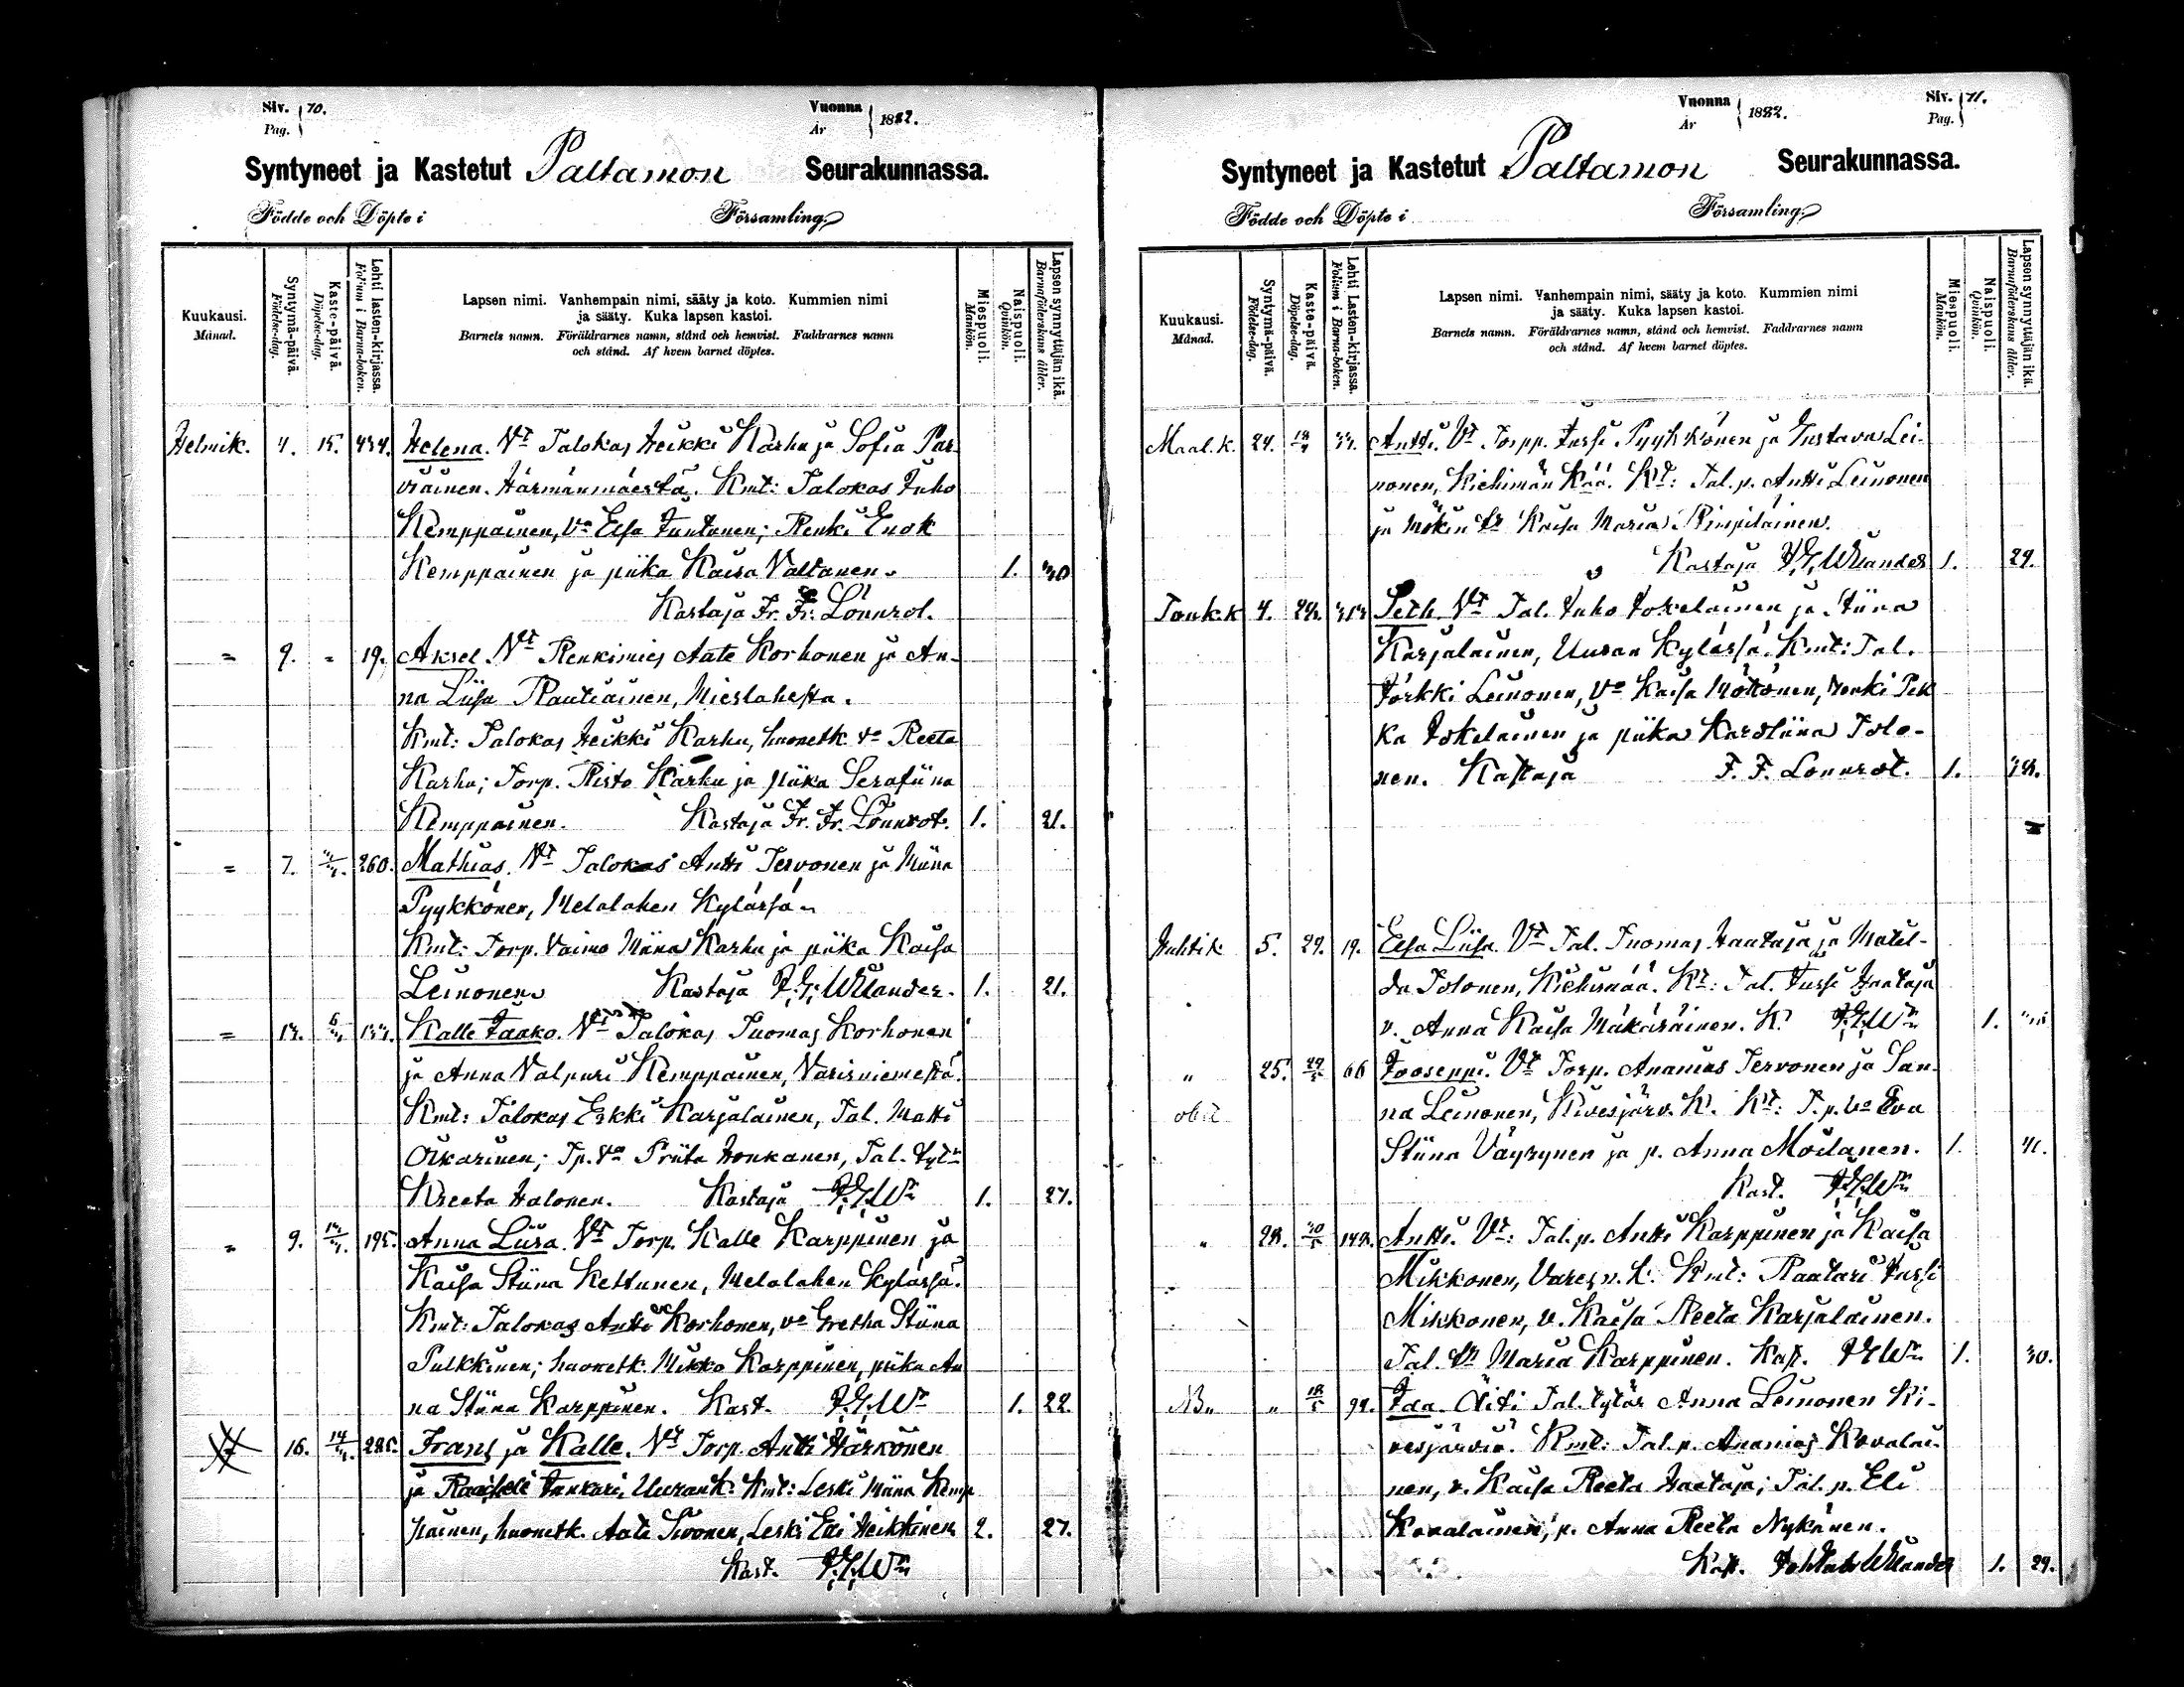 Siv. 70.
Pag.
Vuonna 1882.
År
Syntyneet ja Kastetut Paltamon Seurakunnassa.
Födde och Döpte i Församling.
Kuukausi.
Månad.
Syntymä-päivä.
Födelse-dag.
Kaste-päivä.
Döpelse-dag.
Lehti lasten-kirjassa.
Folium i Barna-boken.
Lapsen nimi. Vanhempain nimi, sääty ja koto. Kummien nimi
ja sääty. Kuka lapsen kastoi.
Barnets namn. Föräldrarnes namn, stånd och hemvist. Faddrarnes namn
och stånd. Af hvem barnet döptes.
Miespuoli.
Mankön.
Naispuoli.
Quinkön.
Lapsen synnyttäjän ikä.
Barnaföderskans ålder.
Helmik. 4. 15. 434. Helena. Vt Talokas Heikki Karhu ja Sofia Par-
viainen. Härmänmäestä. Kmt: Talokas Juho
Kemppainen, vo Elsa Juntunen; Renki Enok
Kemppainen ja piika Kaisa Valtanen. 1. 40
Kastaja Fr. Fr. Lönnrot.
= 9. " 19. Aksel. Vt Renkimies Aate Korhonen ja An-
na Liisa Rautiainen, Mieslahesta.
Kmt: Talokas Heikki Karhu, huonetk. vo Reeta
Karhu; Torp. Risto Karhu ja piika Serafiina
Kemppainen. Kastaja Fr. Fr. Lönnrot. 1. 21.
= 7. 260. Mathias. Vt Talokas Antti Tervonen ja Miina
Pyykkönen, Melalahen Kylässä.
Kmt: Torp. Vaimo Miina Karhu ja piika Kaisa
Leinonen. Kastaja J. G. Wilander. 1. 21.
= Kalle Jaako. Vt Talokas Tuomas Korhonen
ja Anna Valpuri Kemppainen, Varisniemestä.
Kmt: Talokas Erkki Karjalainen, Tal. Matti
Oikarinen; Tp. vo Priita Honkanen, Tal. tytr
Kreeta Halonen. Kastaja J.G.Wr 1. 27.
= 9. 195. Anna Liisa. Vt Torp. Kalle Karppinen ja
Kaisa Stiina Kettunen, Melalahen Kylässä.
Kmt: Talokas Antti Korhonen, vo Gretha Stiina
Pulkkinen; huonetk. Mikko Karppinen, piika An
na Stiina Karppinen. Kast. J.G.Wr 1. 22.
16. 285. Frans ja Kalle. Vt Torp. Antti Härkönen
ja Raakeli Junkari, Uuran K. Kmt: Leski Miina Kemp
painen, huonetk. Aate Sivonen, Leski Eli Heikkinen 2. 27.
Kast. J.G.Wr
Vuonna 1882.
År
Siv. 71.
Pag.
Syntyneet ja Kastetut Paltamon Seurakunnassa.
Födde och Döpte i Församling.
Kuukausi.
Månad.
Syntymä-päivä.
Födelse-dag.
Kaste-päivä.
Döpelse-dag.
Lehti Lasten-kirjassa.
Folium i Barna-boken.
Lapsen nimi. Vanhempain nimi, sääty ja koto. Kummien nimi
ja sääty. Kuka lapsen kastoi.
Barnets namn. Föräldrarnes namn, stånd och hemvist. Faddrarnes namn
och stånd. Af hvem barnet döptes.
Miespuoli.
Mankön.
Naispuoli.
Quinkön.
Lapsen synnyttäjän ikä.
Barnaföderskans ålder.
Maal.k. 24. Antti. Vt Torpp. Jussi Pyykkönen ja Gustava Lei-
nonen, Kiehimän Kää. Kt: Tal.p. Antti Leinonen
ja Mökin tr Kaisa Maria Rimpiläinen.
Kastaja J. G. Wilander 1. 29.
Touk.k 4. 28. Peth. Vt Tal. Juho Tokelainen ja Stiina
Karjalainen, Uuran Kylässä. Kmt: Tal.
Jörkki Leinonen, vo Kaisa Möttönen, renki Pek
ka Tokelainen ja piika Karoliina Tolo-
nen. Kastaja F. F. Lönnrot. 1. 38.
Huhtik 5. 29. 19. Elsa Liisa. Vt Tal. Tuomas Haataja ja Matil-
da Tolonen, Kiehimää. Kt: Tal. Jussi Haataja
v. Anna Kaisa Mäkäräinen. K. J.G.Wr 1.
" 25. 29/5 66 Jooseppi. Vt Torp. Ananias Tervonen ja San-
obiit na Leinonen, Kivesjärv. K. Kt: T.p. vo Eva
Stiina Väyrynen ja p. Anna Moilanen. 1. 41.
Kast. J.G.Wr
" 28. 30/5 148. Antti. Vt: Tal.p. Antti Karppinen ja Kaisa
Mikkonen, Vares.n.k. Kmt: Raatari Jussi
Mikkonen, v. Kaisa Reeta Karjalainen.
Tal. tr Maria Karppinen. Kast. J.G.Wr 1. 30.
NB. " 18/5 92. Ida. Äiti Tal. tytär Anna Leinonen Ki-
vesjärviä. Kmt: Tal.p. Ananias Kovalai-
nen, v. Kaisa Reeta Haataja; Tal.p. Eli
Kovalainen, p. Anna Reeta Nykänen.
Kast. Joh Gab Wilander 1. 29.